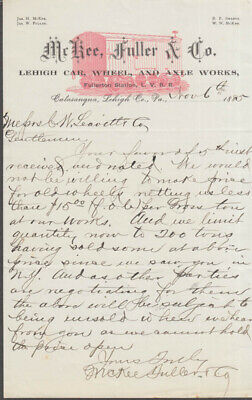 Jas. H. McKee.
Jas. W. Fuller.
D. F. Swartz.
W. N. McKee.
McKee, Fuller & Co.
LEHIGH CAR, WHEEL, AND AXLE WORKS,
Fullerton Station, L. V. R. R.
Catasauqua, Lehigh Co., Pa., Nov 6th 1885
Messrs C W Leavitt & Co
Gentlemen
Your favor of 5th inst
received and noted. We would
not be willing to make price
for old wheels, nothing unless
than $15.00 f.o.b per Gross ton
at our Works. And we limit
quantity now to 200 tons
having sold some at above
price since we saw you in
N.Y. And as other parties
are negotiating for them
the above will be subject to
being unsold when we hear
from you as we cannot hold
the price open
Yours Truly
McKee Fuller & Co